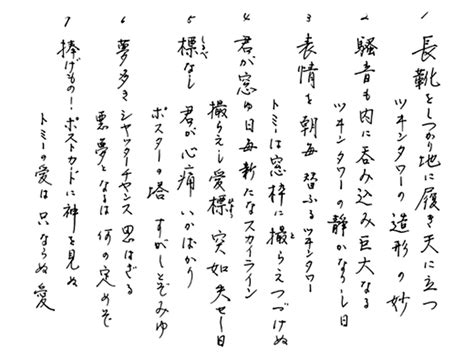 1 長靴をしつかり地に履き天に立つ
ツヰンタワーの造形の妙
2 騒音も内に呑み込み巨大なる
ツヰンタワーの静かなりし日
3 表情を朝毎習ふるツヰンタワー
トミーは窓枠に撮らえつづけぬ
4 君が窓ゆ日毎新たなスカイライン
撮らえし愛標突如失せし日
5 標なし君が心痛いかばかり
しるべ
ポスターの塔すがしとぞみゆ
6 夢多きシヤッターチヤンス思はざる
悪夢となるは何の定めぞ
7 捧げもの!ポストカードに神を見ぬ
トミーの愛は只ならぬ愛